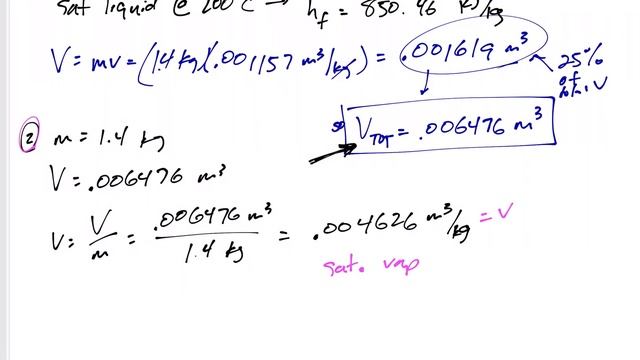 sat liquid @ 200°C → hf = 850.46 kJ/kg
V = mv = (1.4 kg)(.001157 m³/kg) = .001619 m³
25% of total V
so VTOT = .006476 m³
② m = 1.4 kg
V = .006476 m³
v = V/m = .006476 m³ / 1.4 kg = .004626 m³/kg = v
sat. vap